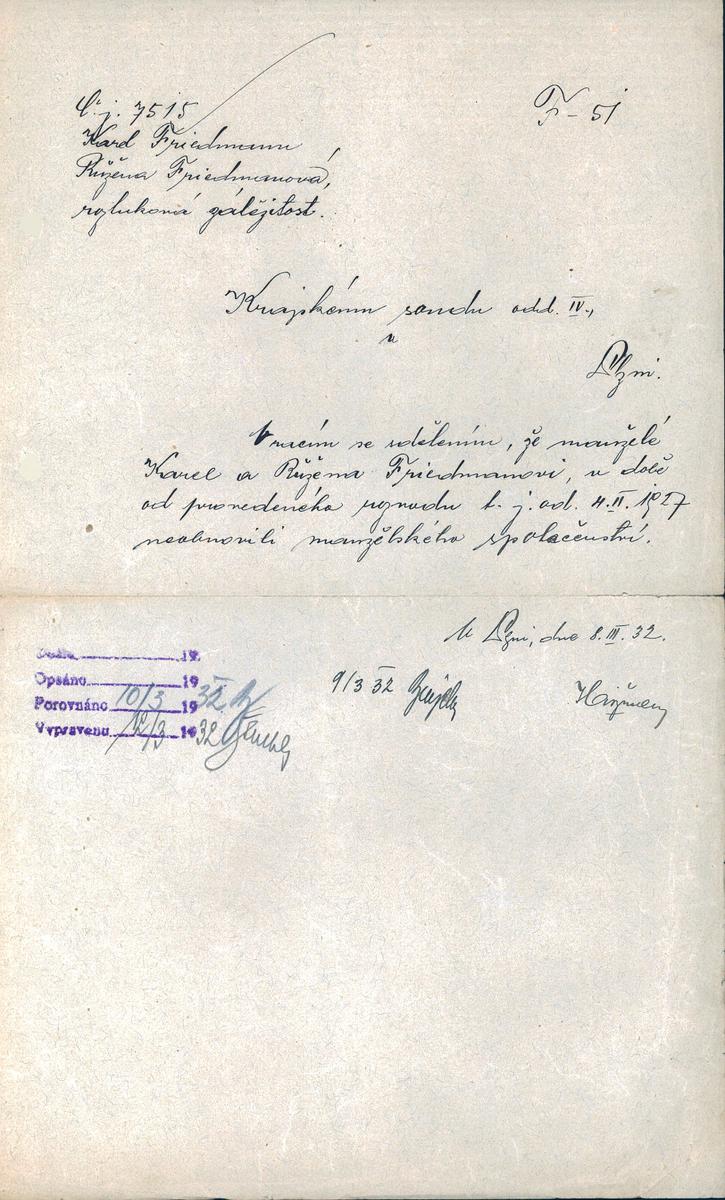 Č. j. 7515
F - 51
Karel Friedmann
Růžena Friedmanová,
rozluková záležitost.
Krajskému soudu odd. IV.,
v
Plzni.
Vracím se sdělením, že manželé
Karel a Růžena Friedmanovi, v době
od provedeného rozvodu t. j. od. 4. II. 1927
neobnovili manželského společenství.
V Plzni, dne 8. III. 32.
19
Opsáno 19
Porovnáno 10/3 1932
Vypraveno 12/3 1932
9/3 32